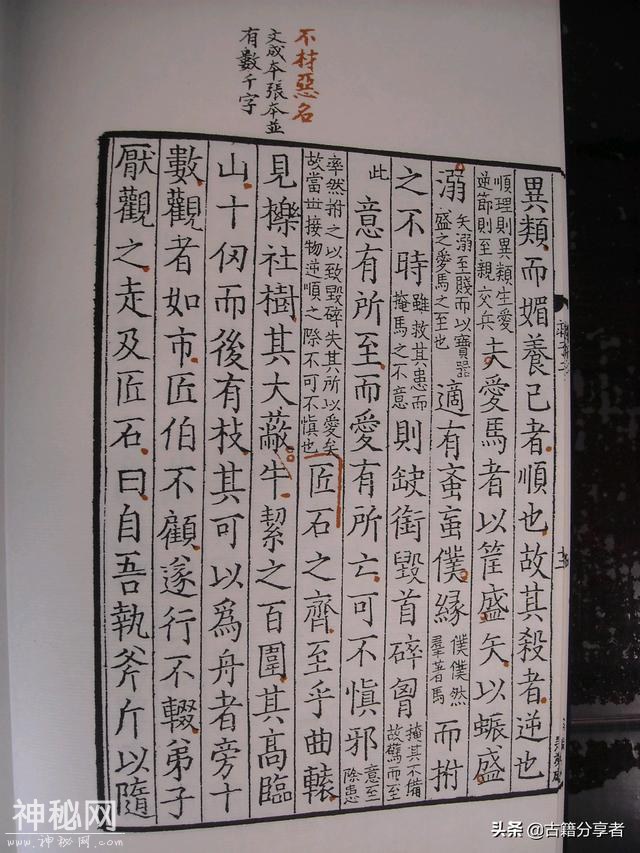 不材惡名
文成本張本並
有數千字
異類而媚養己者順也故其殺者逆也
順理則異類生愛逆節則至親交兵夫愛馬者以筐盛矢以蜄盛
溺矢溺至賤而以寶器盛之愛馬之至也適有蚉䖟僕緣僕僕然羣著馬而拊
之不時雖救其患而掩馬之不意則缺銜毀首碎胷掩其不備故驚而至
此意有所至而愛有所亡可不慎邪意至除患
率然拊之以致毀碎失其所以愛矣故當世接物逆順之際不可不慎也匠石之齊至乎曲轅
見櫟社樹其大蔽牛絜之百圍其高臨
山十仞而後有枝其可以爲舟者旁十
數觀者如市匠伯不顧遂行不輟弟子
厭觀之走及匠石曰自吾執斧斤以隨
神秘网
www.神秘网.COM
头条 @古籍分享者